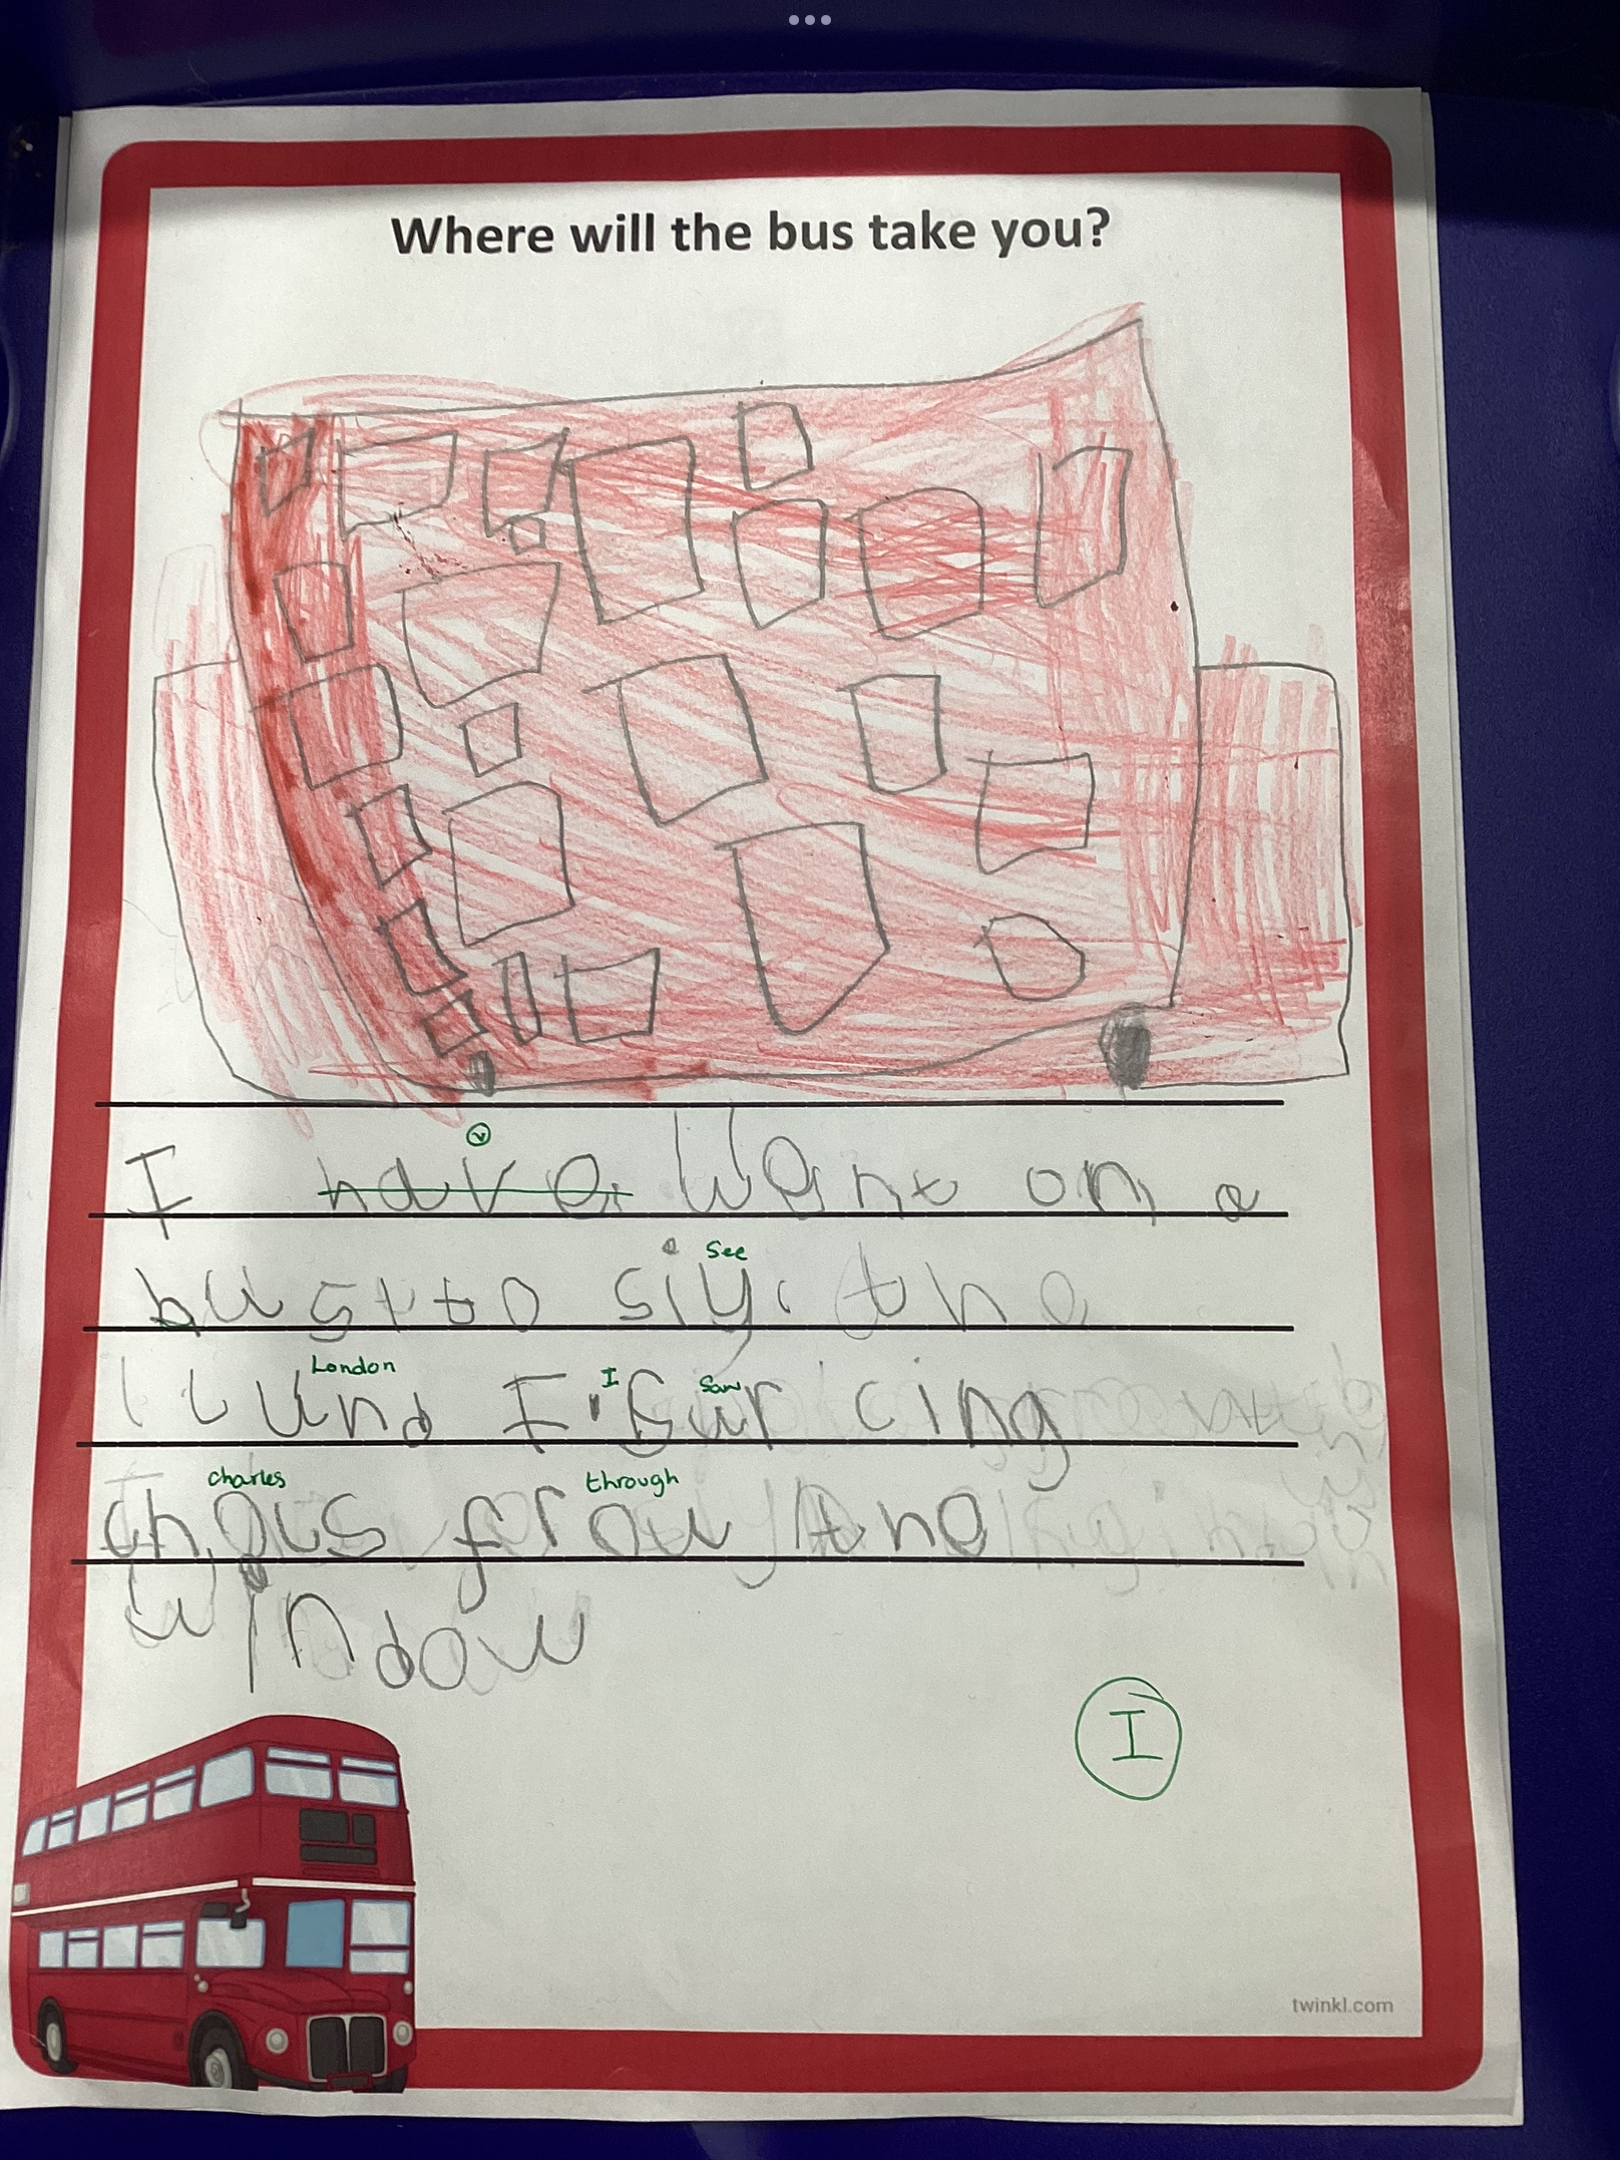 Where will the bus take you?
v
I have want on a
See
bus to siy. the
London I Saw
llund I sur cing
Charles through
chols frow the
window
I
twinkl.com